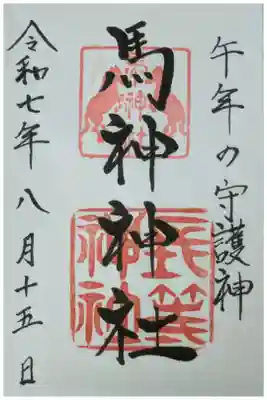 午年の守護神
馬神神社
令和七年八月十五日